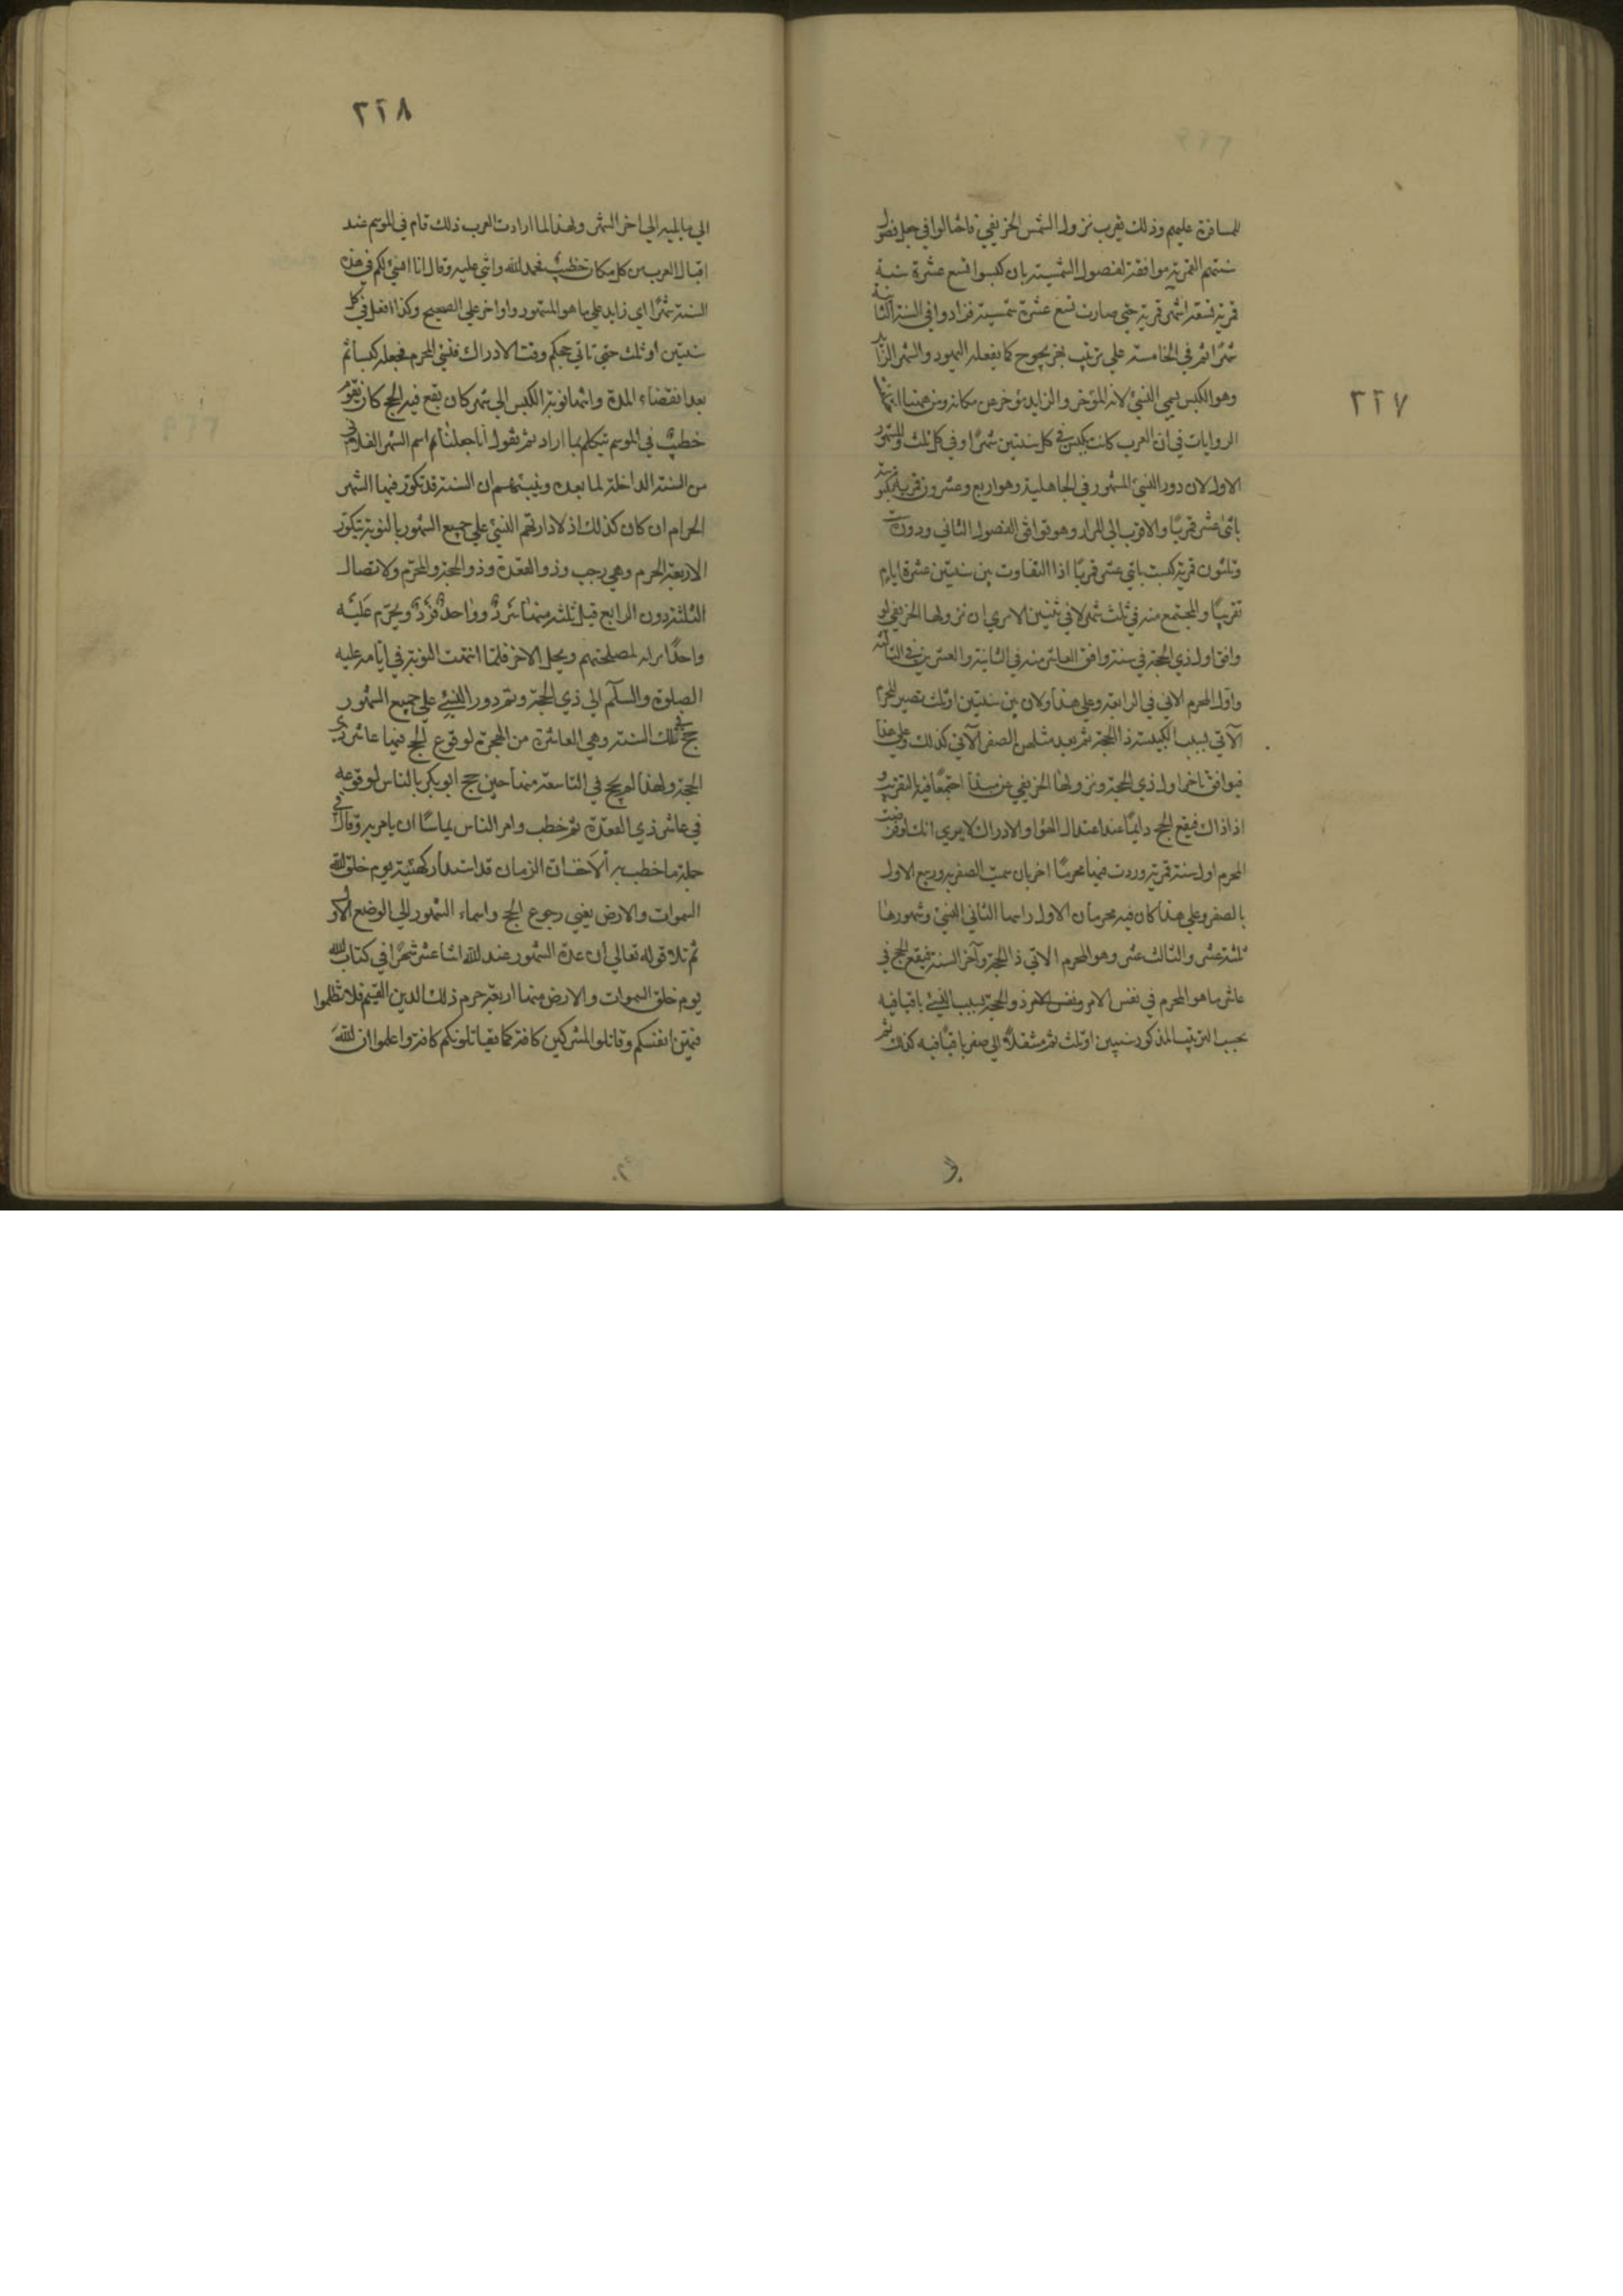 ٢٢٧
للمسافرة عليهم وذلك بقرب نزول الشمس الخريفي فاحتالوا في جعل فصول
سنتهم القمرية موافقة لفصول الشمسية بان كبسوا تسع عشرة سنة
قمرية تسعة اشهر قمرية حتى صارت تسع عشرة شمسية فزادوا في السنة الثانية
شهرًا ثم في الخامسة على ترتيب بهزيجوح كما يفعله اليهود والشهر الزايد
وهو الكبس يسمى النسئ لانه المؤخر والزايد مؤخر عن مكانه ومن همنا
الروايات في ان العرب كانت تكبس في كل سنتين شهرًا وفي كل ثلث والمشهور
الاول لان دور النسئ المشهور في الجاهلية وهو اربع وعشرون قمرية مكبوسة
باثنى عشر قمريًا والاقرب الى المراد وهو توافق الفصول الثاني ودوره ست
وثلثون قمرية كبست باثنى عشر قمريًا اذا التفاوت بين سنتين عشرة ايام
تقريبًا والمجتمع منه في ثلث شهر لا في ثنتين الا يرى ان نزولها الخريفي لو
وافق اول ذي الحجة في سنة وافق العاشر منه في الثانية والعشرين في الثالثة
واول المحرم الاتي في الرابعة وعلى هذا ولان بين سنتين او ثلث تصير المحرم
الآتي بسبب الكبيسة ذا الحجة ثم بعد مثلهن الصفر الآتي كذلك وعلى هذا
فيوافق اول ذي الحجة ونزولها الخريفي اجتمعا فيه التقريب و
اذ اذاك فيقع الحج دايمًا عند اعتدال الهوا والادراك لا يرى انك لو فرضت
المحرم اول سنة قمرية وردت فيها محرمًا اخر بان سميت الصفر به وربيع الاول
بالصفر وعلى هذا كان فيه محرمان الاول راسها الثاني النسئ وشهورها
ثلثة عشر والثالث عشر وهو المحرم الاتي ذا الحجة وآخر السنة فيقع الحج في
عاشر ما هو المحرم في نفس الامر ونفس الامر ذو الحجة بسبب النسئ باقيا فيه
بحسب الترتيب المذكور سنتين او ثلث ثم منتقلًا الى صفر باقيًا فيه كذلك ثم
٢٢٨
الى ما يليه الى اخر الشهر ولهذا لما ارادت العرب ذلك قام في الموسم عند
اقبال العرب من كل مكان خطيب فحمد الله واثنى عليه وقال انا انسئ لكم في هذه
السنة شهرًا اي زايد على ما هو المشهور واواخر على الصحيح وكذا افعل في كل
سنتين او ثلث حتى تاتي حجكم وقت الادراك فنسئ المحرم فجعله كبسا ثم
بعد انقضاء المدة وانتهاء نوبة الكبس الى شهر كان يقع فيه الحج كان يقوم
خطيب في الموسم تتكلم بما اراد ثم يقول انا جعلنا اسم الشهر الفلاني
من السنة الداخلة لما بعده ونسيتهم ان السنة قد تكرر فيها الشهر
الحرام ان كان كذلك اذ لادارتهم النسئ على جميع الشهور بالنوبة تتكرر
الاربعة الحرم وهي رجب وذو القعدة وذو الحجة والمحرم ولاتصال
الثلثة دون الرابع قيل ثلثة منها سرد وواحد فرد ويحرم عليه
واحدًا براه لمصلحتهم ويحل الاخر فلما انتهت النوبة في ايامه عليه
الصلوة والسلام الى ذي الحجة وتم دور النسئ على جميع الشهور
حج في تلك السنة وهي العاشرة من الهجرة لوقوع الحج فيها عاشر ذي
الحجة ولهذا لم يحج في التاسعة منها حين حج ابو بكر بالناس لوقوعه
في عاشر ذي القعدة ثم خطب وامر الناس بما شا ان يامر به وقال في
جملة ما خطب به ألا ان الزمان قد استدار كهيئته يوم خلق الله
السموات والارض يعني رجوع الحج واسماء الشهور الى الوضع الاول
ثم تلا قوله تعالى ان عدة الشهور عند الله اثنا عشر شهرًا في كتاب الله
يوم خلق السموات والارض منها اربعة حرم ذلك الدين القيم فلا تظلموا
فيهن انفسكم وقاتلوا المشركين كافة كما يقاتلونكم كافة واعلموا ان الله